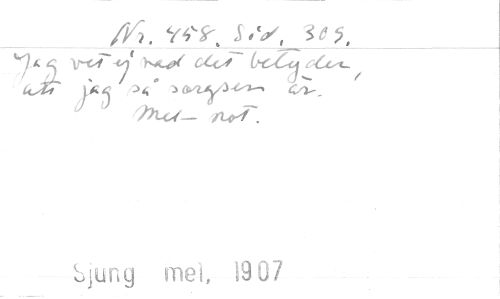 Nr. 458. Sid. 309.
Jag vet ej vad det betyder,
att jag så sorgsen är.
Mel- not.
Sjung mel, 1907